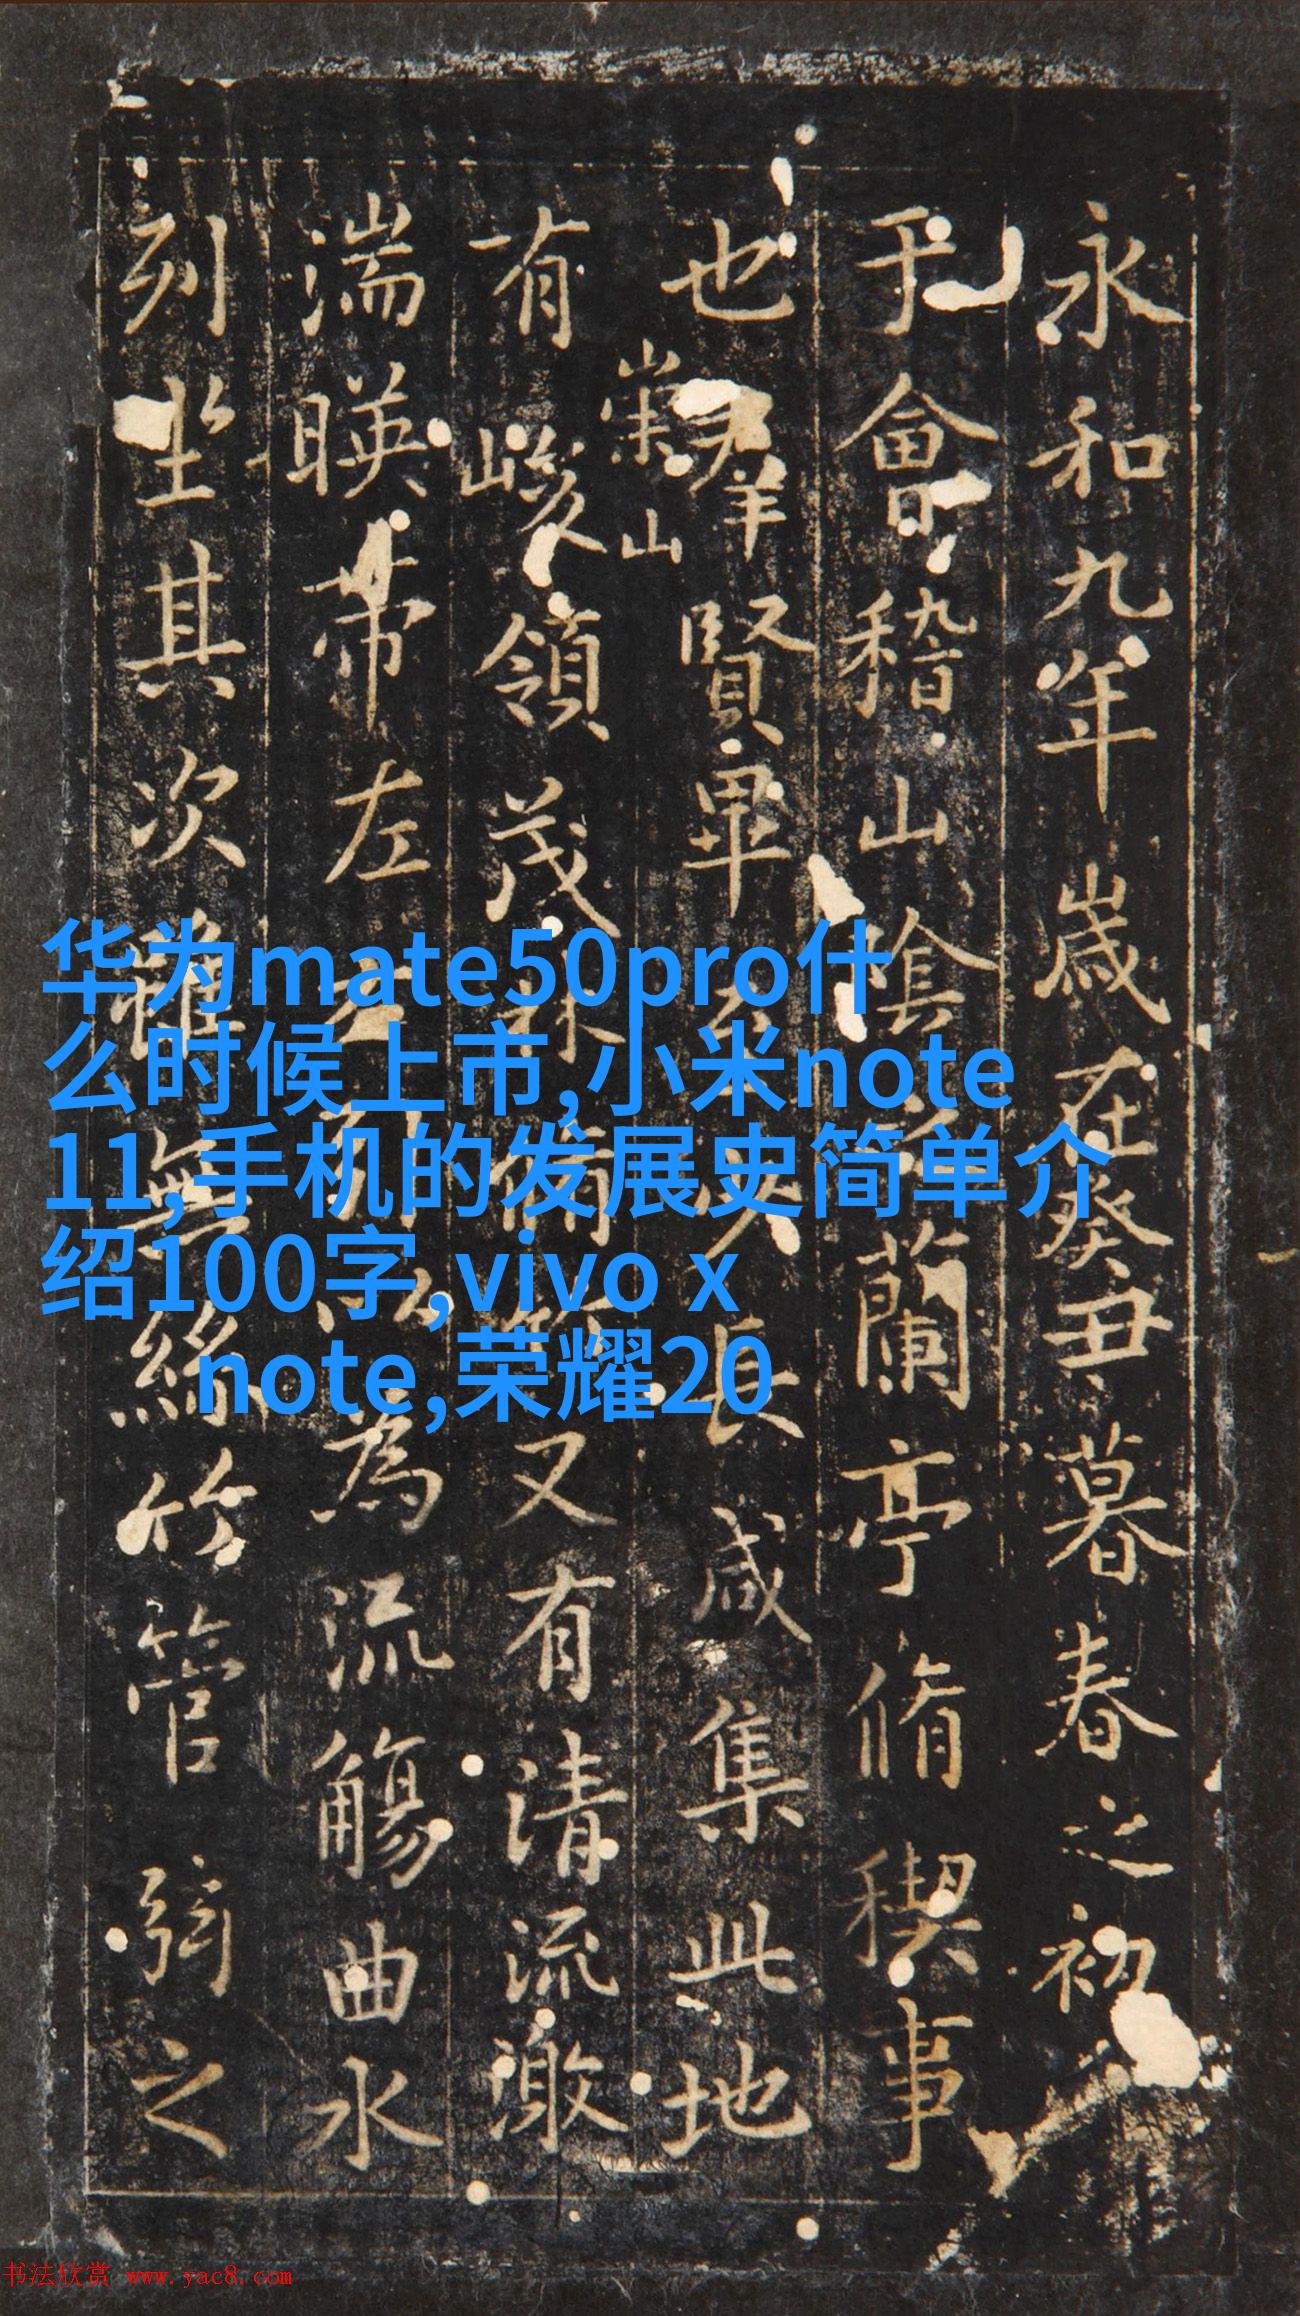 永和九年歲在癸丑暮春之初
于會稽山陰之蘭亭脩稧事
也羣賢畢至少長咸集此地
崇山
有峻領茂林脩竹又有清流激
湍暎帶左右引以為流觴曲水
列坐其次雖無絲竹管弦之
华为mate50pro什
么时候上市,小米note
11,手机的发展史简单介
绍100字,vivo x
note,荣耀20
书法欣赏 www.yac8.com